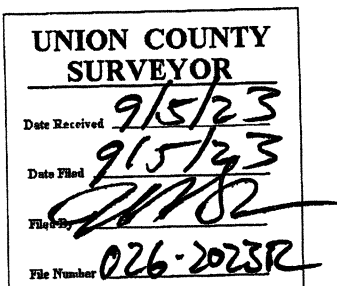 UNION COUNTY
SURVEYOR
Date Received 9/5/23
Date Filed 9/5/23
Filed By
File Number 026-2023R